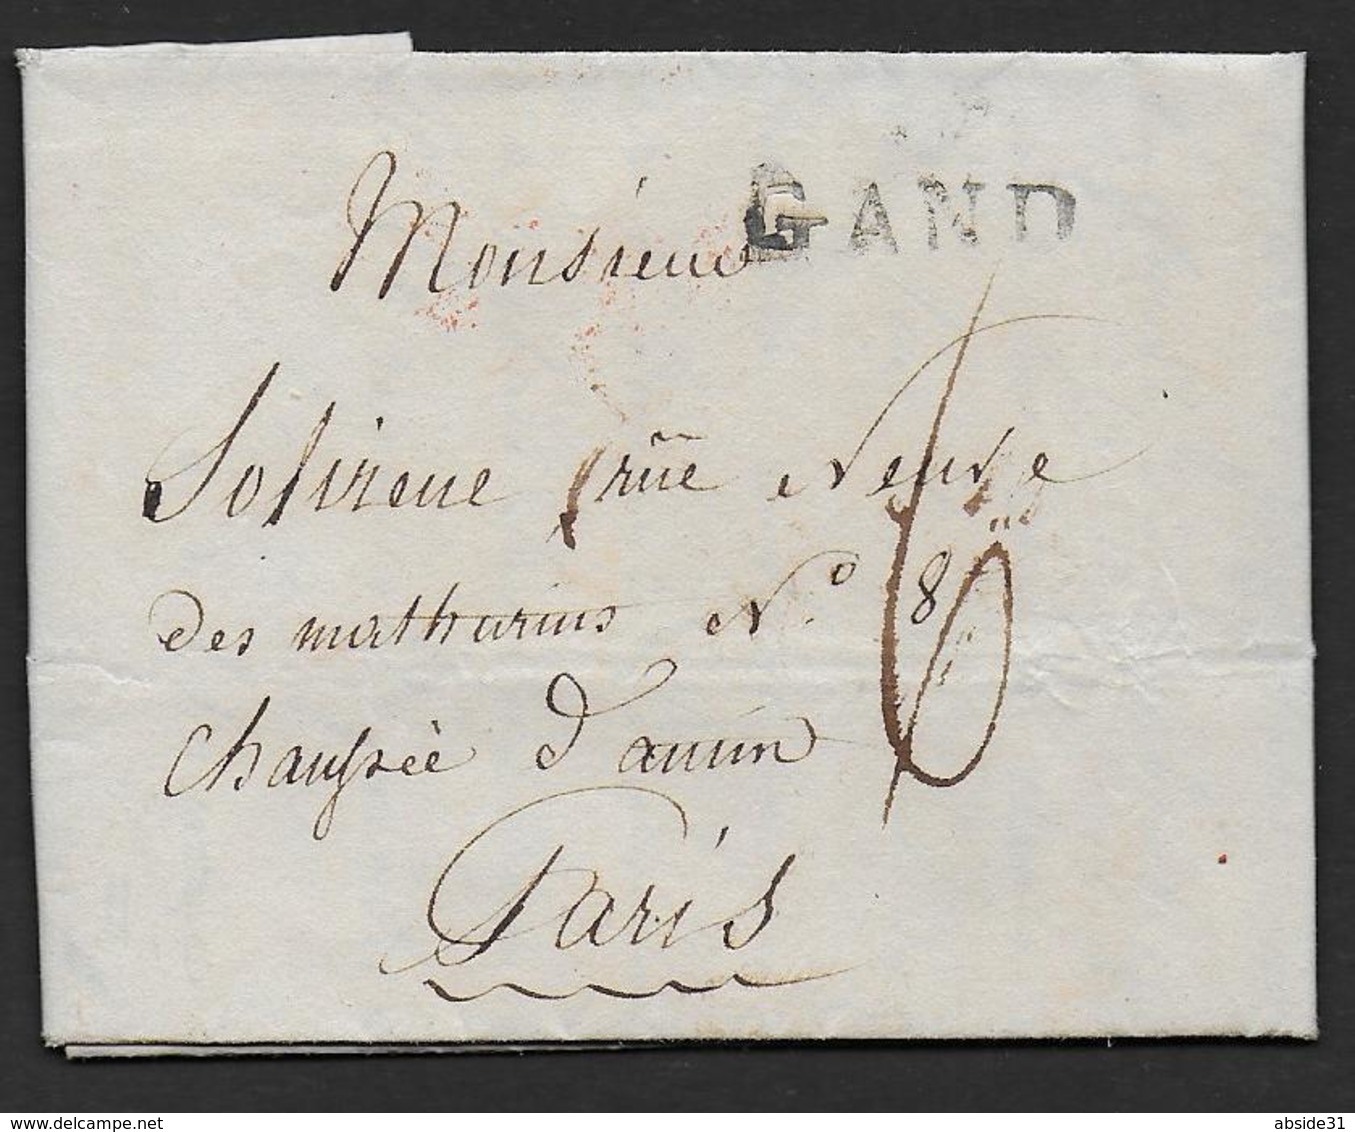 GAND
Monsieur
Solirene rüe Neuve
des mathurins N.o 8
chaussée d'antin
Paris
delcampe.net
abside31